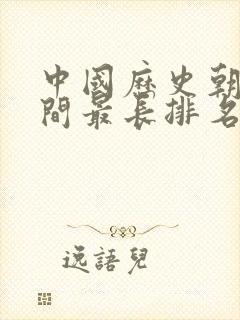 中國歷史朝
間最長排名
逸語兒